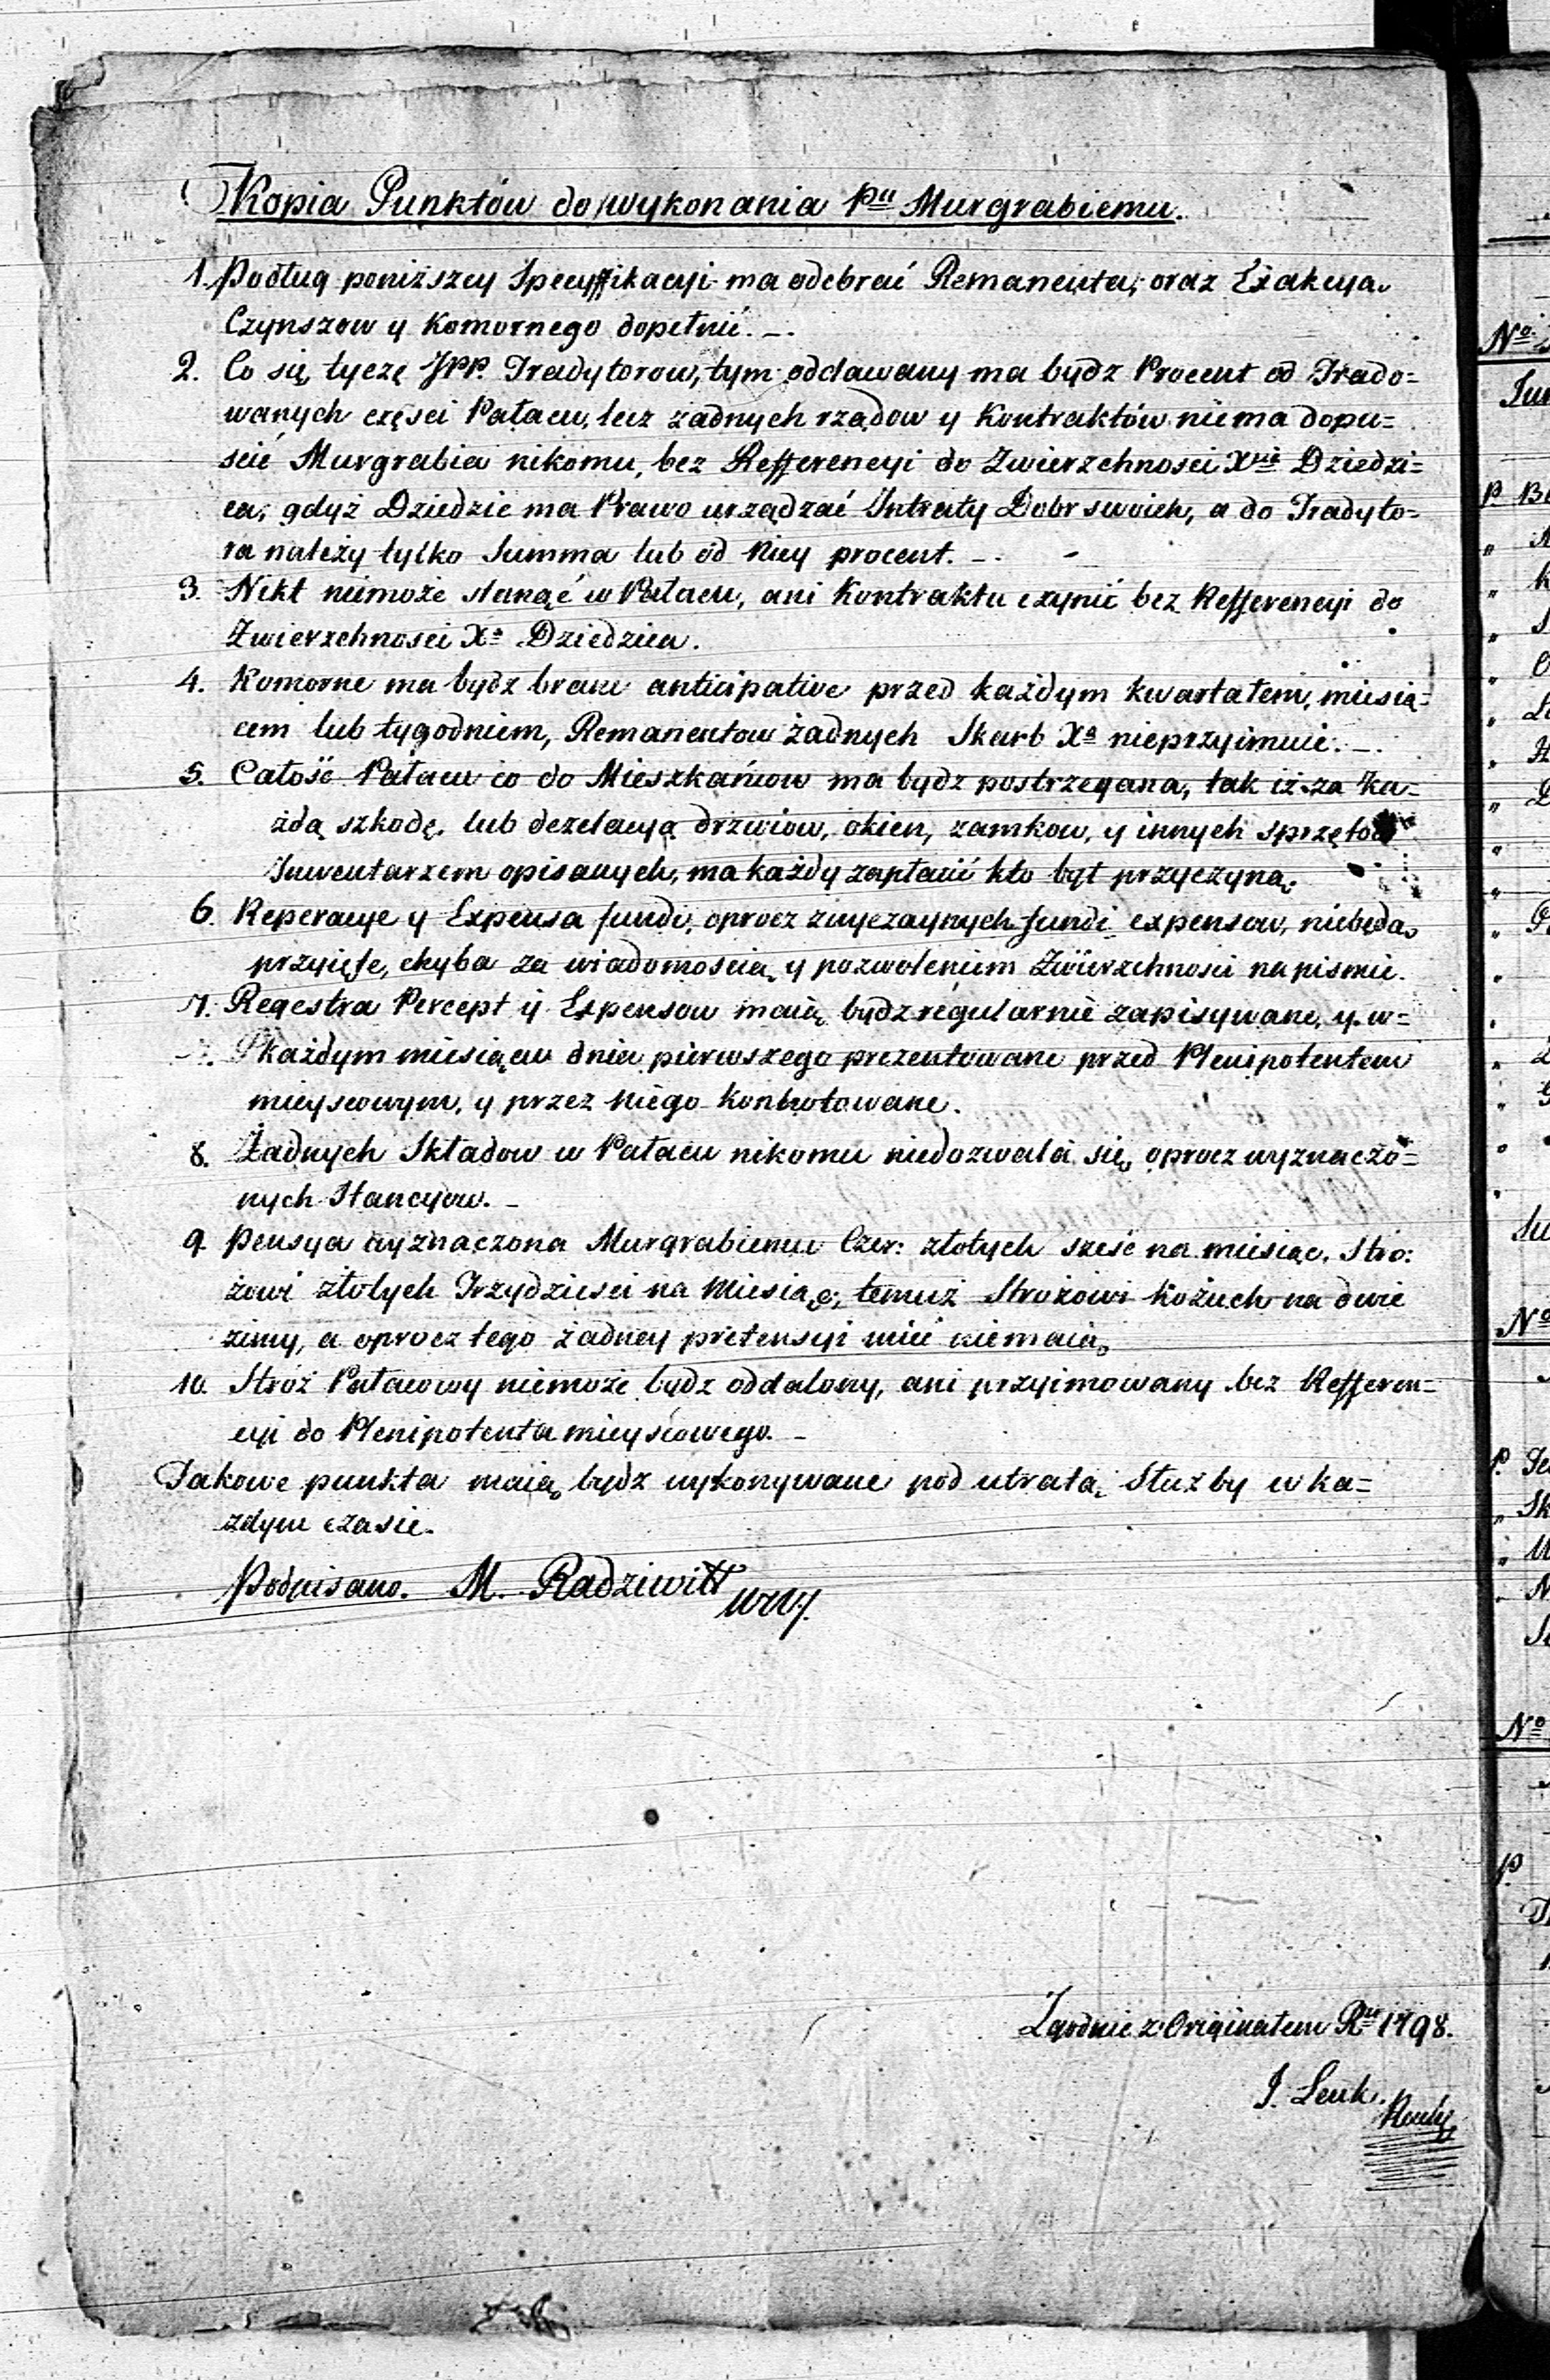 Kopia Punktów do wykonania Pu Murgrabiemu.
1. Podług poniższey Specyffikacyi ma odebrać Remanenta, oraz Exakcya
Czynszow y Komornego dopełnić. —
2. Co się tyczę JPP. Tradytorow, tym oddawany ma bydz Procent od Trado=
wanych częsci Pałacu, lecz żadnych rządow y Kontraktów niema dopu=
scić Murgrabia nikomu, bez Refferencyi do Zwierzchnosci Xcia Dziedzi=
ca, gdyż Dziedzic ma Prawo urządzać Intraty Dobr swoich, a do Tradyto=
ra należy tylko Summa lub od Niey procent. —
3. Nikt niemoże stanąć w Pałacu, ani Kontraktu czynić bez Refferencyi do
Zwierzchnosci Xa Dziedzica.
4. Komorne ma bydz brane anticipative przed każdym kwartałem, miesią=
cem lub tygodniem, Remanentow żadnych Skarb Xa nieprzyimuie. —
5. Całość Pałacu co do Mieszkańcow ma bydz postrzegana, tak iż za ka=
żdą szkodę, lub dezelacyą drzwiow, okien, zamkow, y innych sprzętow
Inwentarzem opisanych, ma każdy zapłacić kto był przyczyną.
6. Reperacye y Expensa fundi, oprocz zwyczaynych fundi expensow, niebędą
przyięte, chyba za wiadomoscią y pozwoleniem Zwierzchnosci na pismie.
7. Regestra Percept y Expensow maią bydz regularnie zapisywane, y w=
każdym miesiącu dnia pierwszego prezentowane przed Plenipotentem
mieyscowym, y przez niego kontrolowane.
8. Żadnych Składow w Pałacu nikomu niedozwala się, oprocz wyznaczo=
nych Stancyow. —
9. Pensya wyznaczona Murgrabiemu Czer: złotych sześć na miesiąc, Stro:
żowi złotych Trzydziesci na Miesiąc, temuż Stróżowi Kożuch na dwie
zimy, a oprocz tego żadney pretensyi mieć niemaią.
10. Stróż Pałacowy niemoże bydz oddalony, ani przyimowany bez Refferen=
cyi do Plenipotenta mieyscowego. —
Takowe punkta maią bydz wykonywane pod utratą Służby w ka=
żdym czasie.
Podpisano. M. Radziwiłł
Zgodnie z Originałem Ru 1798.
J. Lenk.